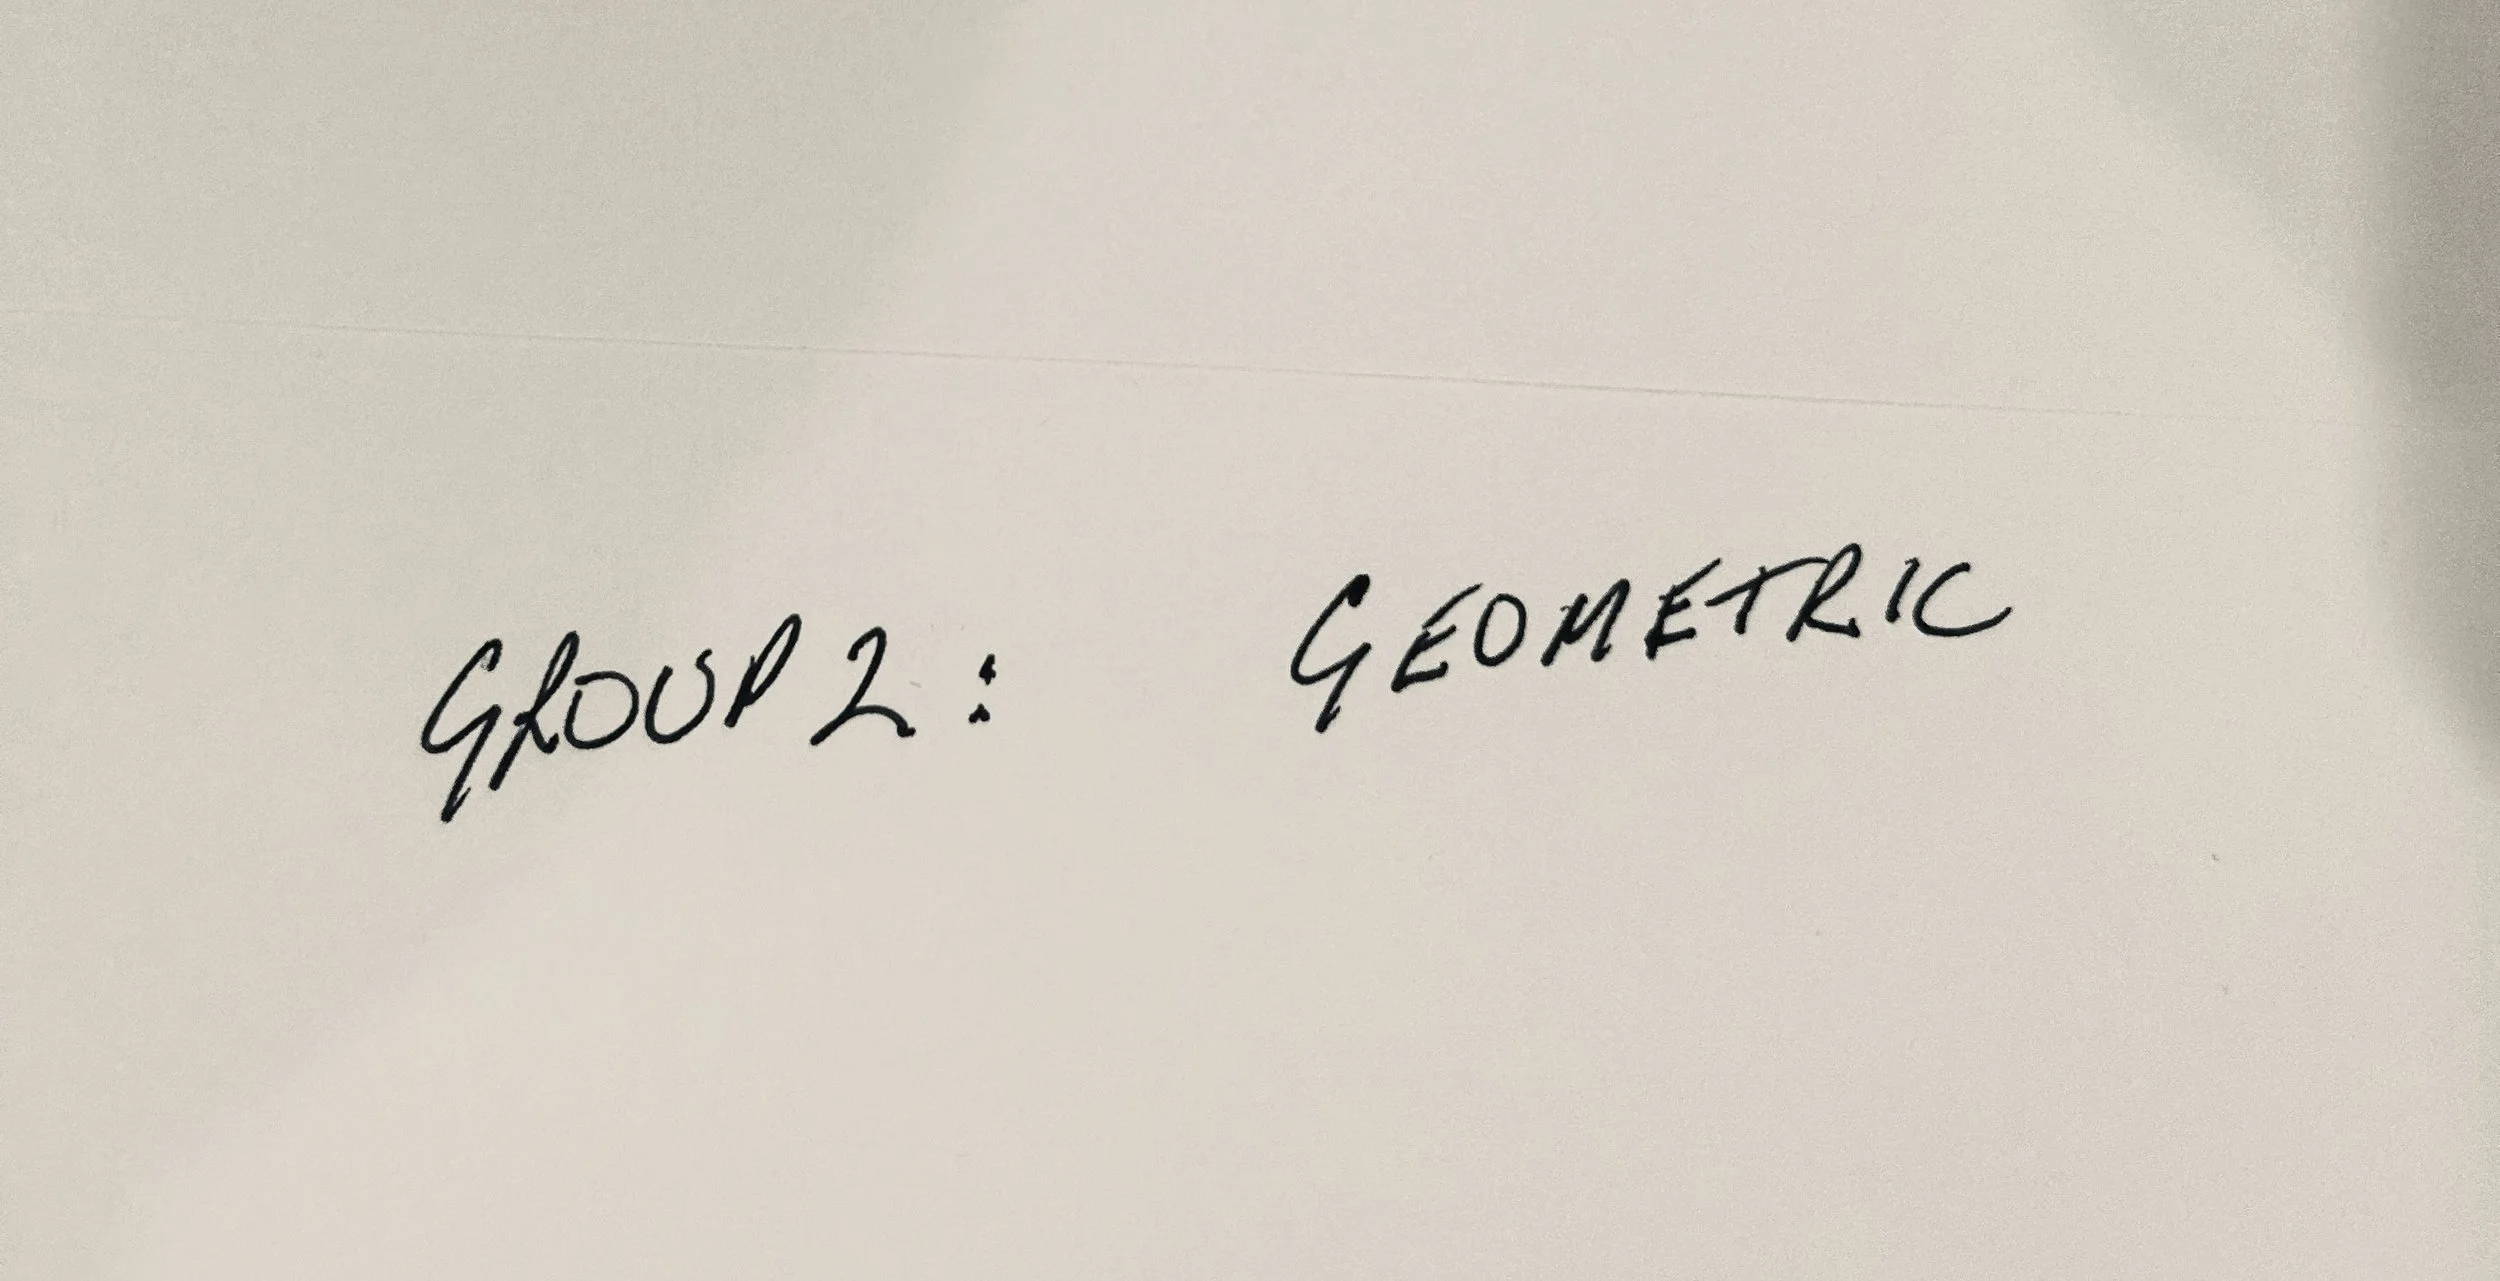 GROUP 2: GEOMETRIC